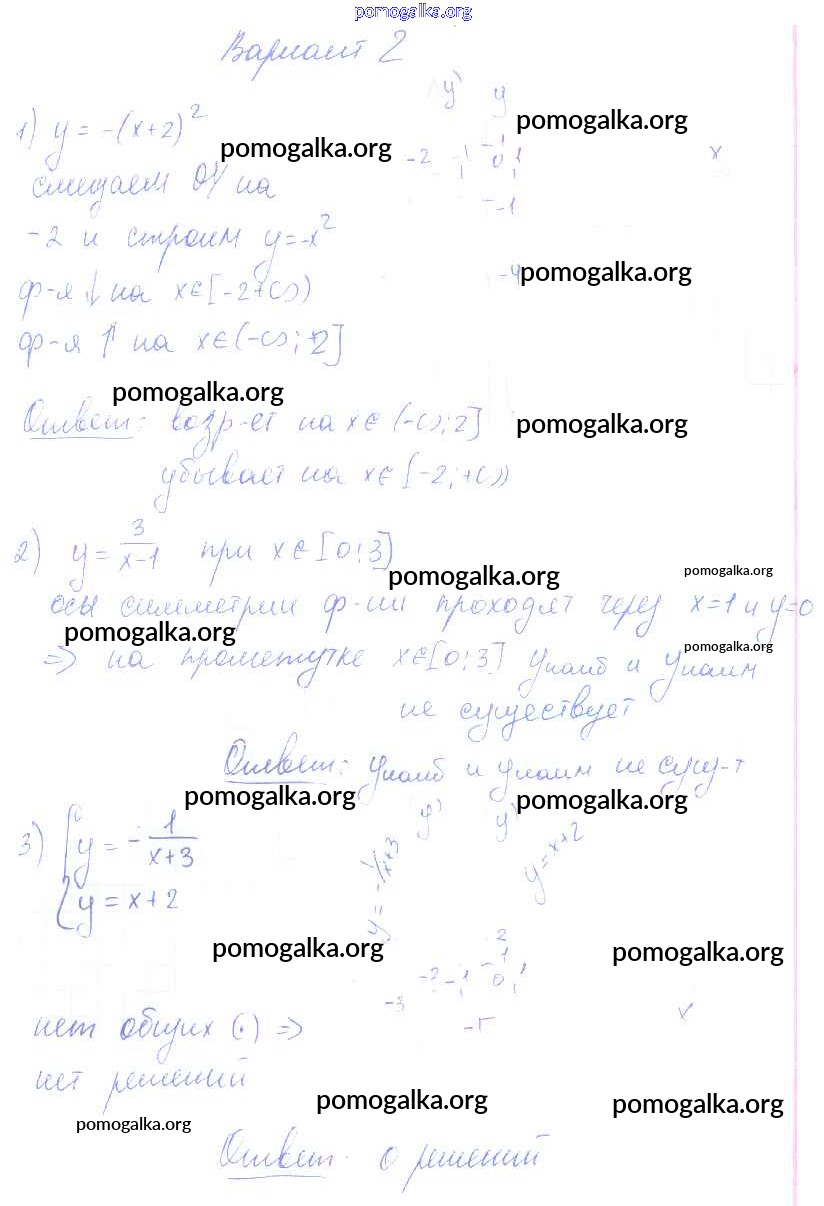 pomogalka.org
Вариант 2
1) y = -(x+2)²
pomogalka.org
pomogalka.org
смещаем OY на
-2 и строим y=-x²
ф-я ↓ на x∈[-2+∞)
ф-я ↑ на x∈(-∞;-2]
y' y
-2 -1 0 1 x
-1
-4
pomogalka.org
pomogalka.org
pomogalka.org
Ответ: возр-ет на x∈(-∞;2]
убывает на x∈[-2;+∞)
2) y = 3/(x-1) при x∈[0;3]
pomogalka.org
pomogalka.org
осы симметрии ф-ии проходят через x=1 и y=0
pomogalka.org
pomogalka.org
=> на прометутке x∈[0;3] yнаиб и yнаим
не существует
Ответ: yнаиб и yнаим не сущ-т
pomogalka.org
pomogalka.org
3) { y = -1/(x+3)
y = x+2
y' y'
y=-1/x+3
y=x+2
pomogalka.org
pomogalka.org
2
1
-3 -2 -1 0 1
-1
x
нет общих (·) =>
нет решений
pomogalka.org
pomogalka.org
pomogalka.org
Ответ. 0 решений